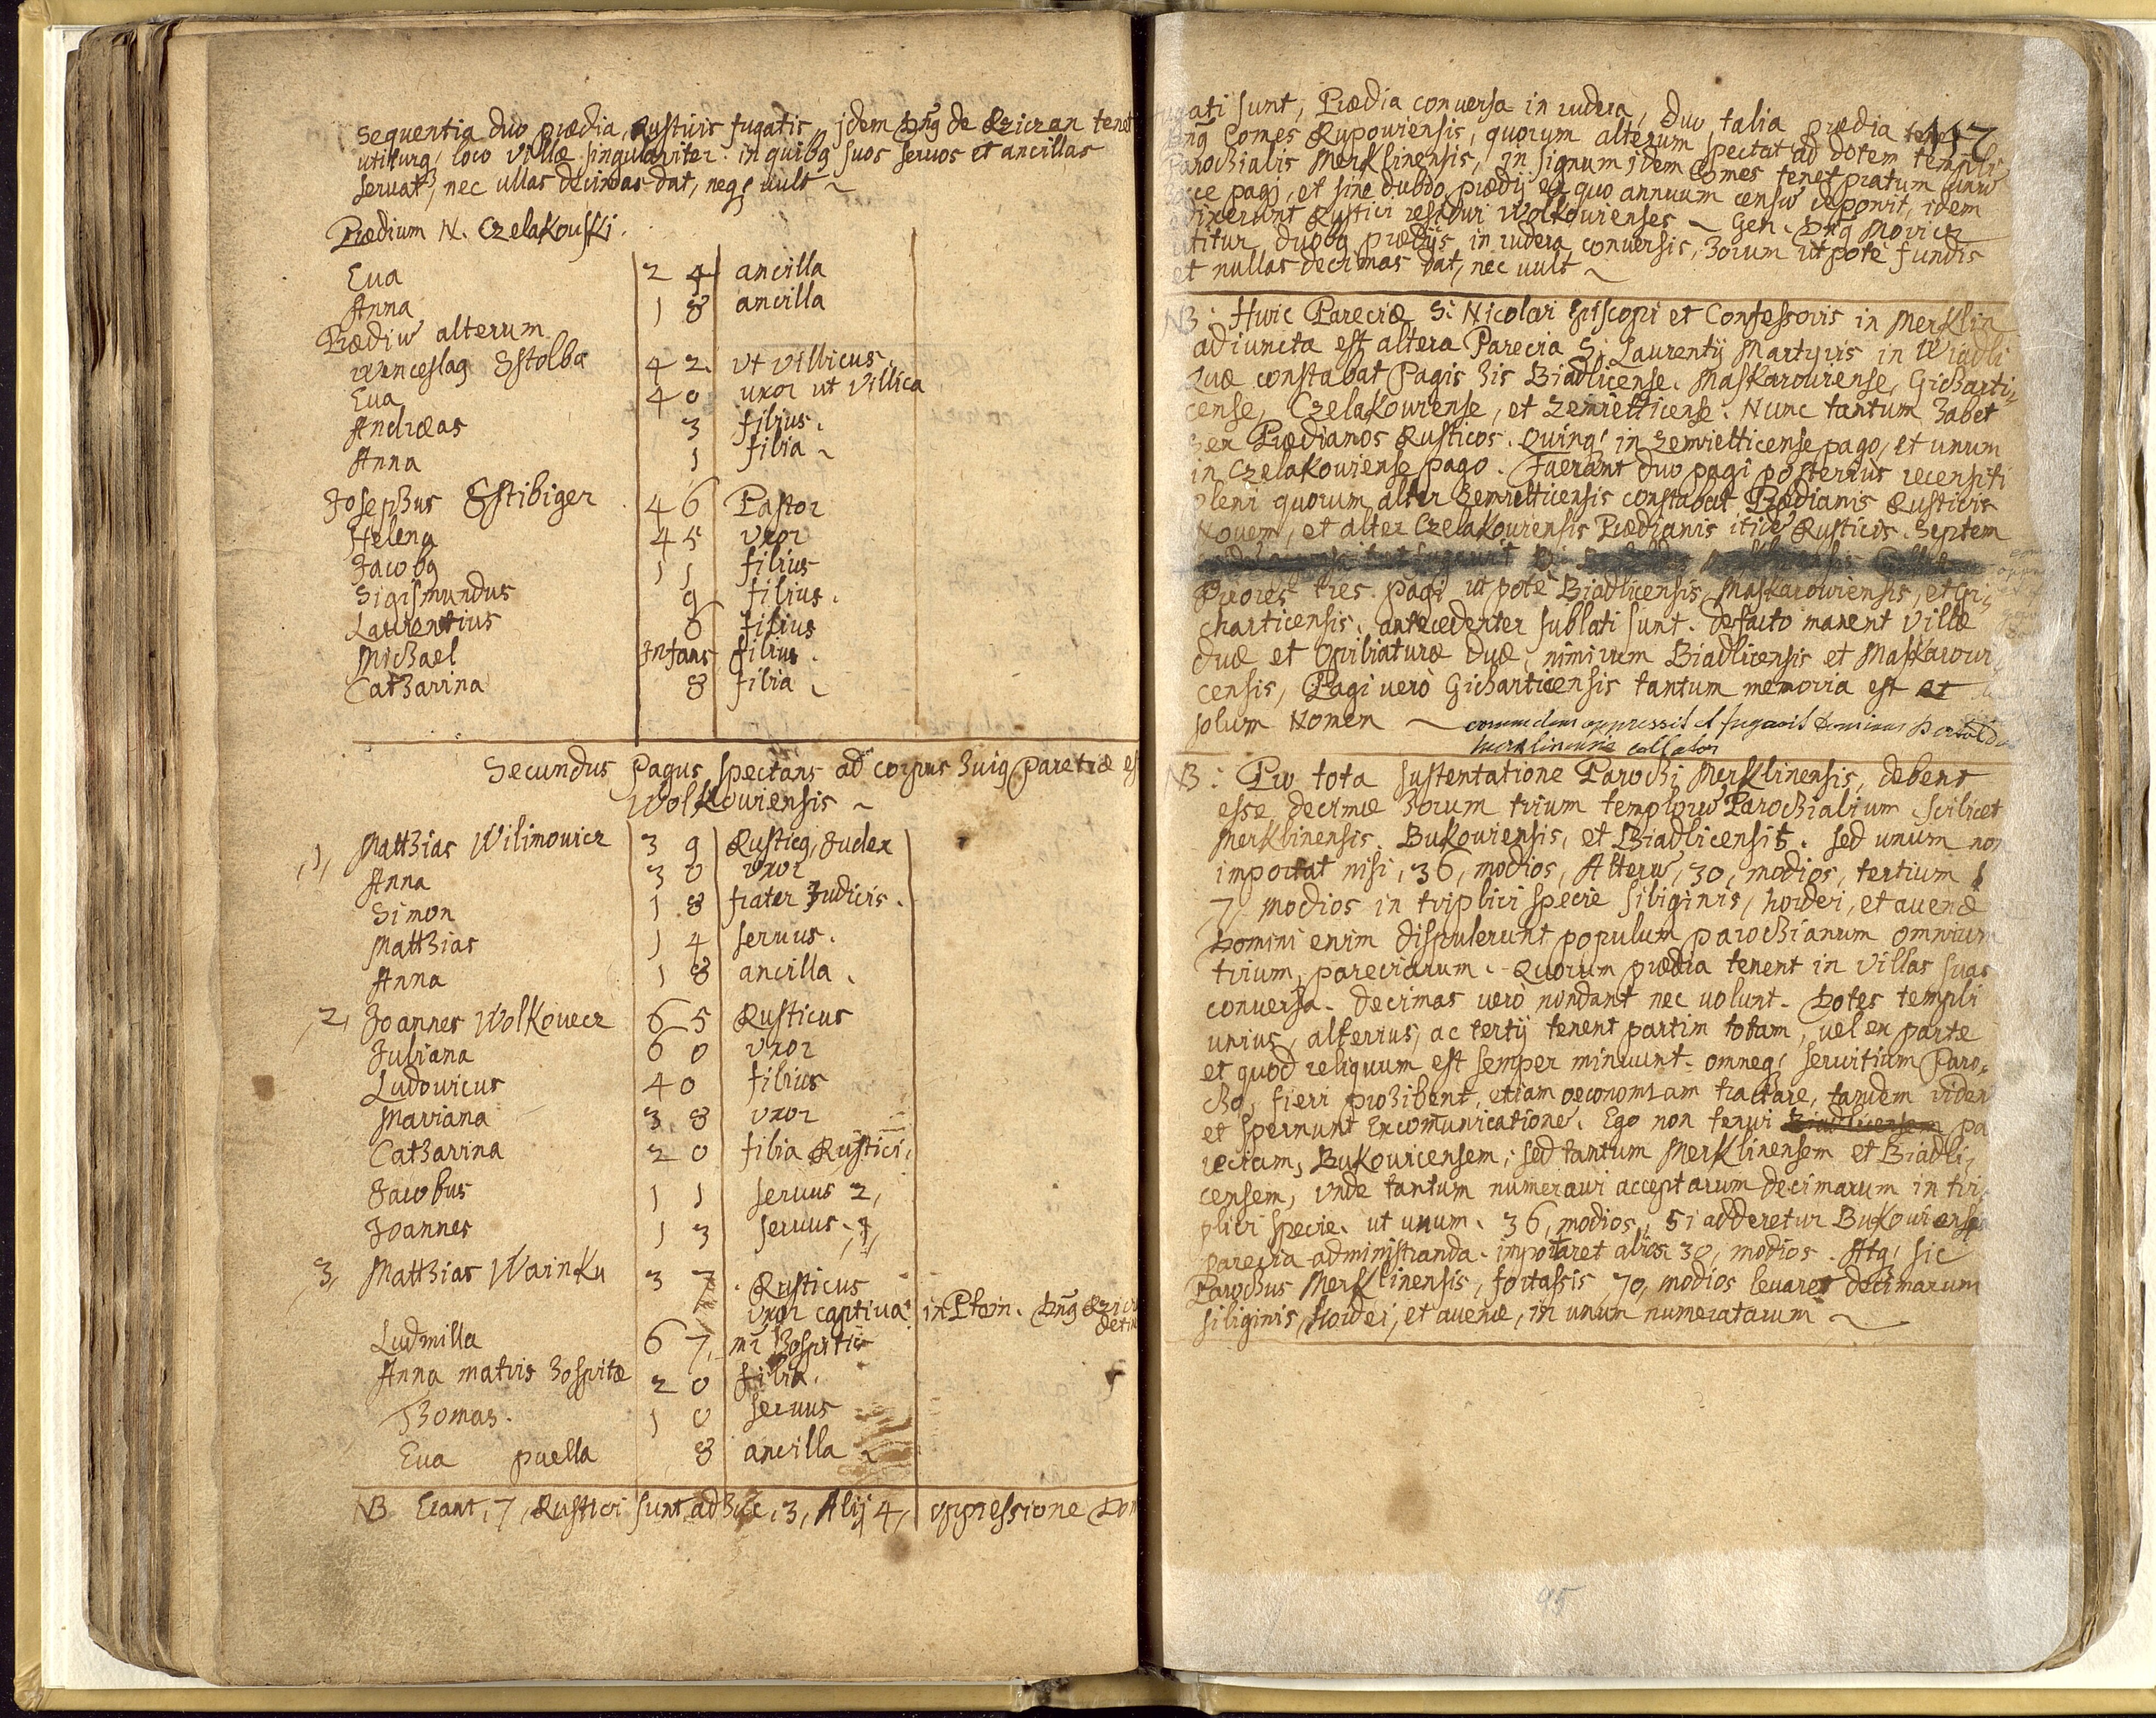 Sequentia duo prædia, Rusticis fugatis, jdem Dn9 de Rziczan tenet
utiturq; loco Villæ singulariter. in quibq suos seruos et ancillas
seruat, nec ullas decimas dat, neq; uult ~
Prædium N. Czelakouski.
Eua 24 ancilla
Anna 18 ancilla
Prædiū alterum
Wenceslaq Sstolba 42. vt Villicus.
Eua 40 uxor ut Villica
Andræas 3 filius.
Anna 1 filia ~
Josephus Sstibiger 46 Pastor
Helena 45 vxor
Jacobq 11 filius
Sigismundus 9 filius.
Laurentius 6 filius
Michael Infans filius.
Catharina 8 filia ~
Secundus Pagus spectans ad corpus huiq Pareciæ es
Wolkouiensis ~
,1, Matthias Wilimowicz 39 Rusticq, Judex
Anna 30 vxor
Simon 18 frater Judicis.
Matthias 14 seruus.
Anna 18 ancilla.
,2, Joannes Wolkouecz 65 Rusticus
Juliana 60 vxor
Ludouicus 40 filius
Mariana 38 vxor
Catharina 20 filia Rustici,
Jacobus 11 seruus 2,
Joannes 13 seruus. 1,
,3, Matthias Wainku 37 Rusticus
vxor captiua in Ptein. Dn9 Rzicz
detin
Ludmilla 67, hospita
Anna matris hospitæ 20 filia.
Thomas. 10 seruus
Eua puella 8 ancilla ~
NB Erant, 7, Rustici sunt adhuc, 3, Alij 4, oppressione Dom
117
gati sunt, Prædia conuersa in rudera, Duo talia prædia tenet
Dn9 Comes Rupouiensis, quorum alterum spectat ad dotem templi
Parochialis Merklinensis, in signum jdem Comes tenet pratum
pagi, et sine dubio prædij ex quo annuum censū deponit, idem
dixerunt Rustici residui Wolkouienses ~ Gen. Dn9 Mouicz
utitur duobq prædijs in rudera conuersis, horum utpote fundis
et nullas decimas dat, nec uult ~
NB: Huic Pareciæ S: Nicolai Episcopi et Confessoris in Merklin
adiuncta est altera Parecia S: Laurentij Martyris in Wiadli
Quæ constabat Pagis his Biadlicense. Maskarouiense, Gicharti,
cense, Czelakouiense, et Zemietticense. Nunc tantum habet
sex Prædianos Rusticos. Quinq; in Zemietticense pago, et unum
in Czelakouiense pago. Fuerant duo pagi posterius recensiti
pleni quorum alter Zemietticensis constabat Prædianis Rusticis
Nouem, et alter Czelakouiensis Prædianis itidē Rusticis. Septem
Priores tres pagi ut pote Biadlicensis, Maskarouiensis, et Gi,
charticensis. antecedenter sublati sunt. Defacto manent Villæ
duæ et Opiliaturæ duæ, nimirum Biadlicensis et Maskaroui
censis, Pagi uerò Gicharticensis tantum memoria est et
solum Nomen ~ commedam oppressit et fugauit Dominus
Merklinensis collator
NB: Pro tota sustentatione Parochi Merklinensis, debent
esse decimæ horum trium templorū Parochialium scilicet
Merklinensis. Bukouiensis, et Biadlicensis. sed unum non
importat nisi, 36, modios, Alterū, 30, modios, tertium
7 modios in triplici specie siliginis, hordei, et auenæ
Domini enim dispulerunt populum parochianum omnium
trium pareciarum. Quorum prædia tenent in Villas suas
conuersa. Decimas verò nondant nec uolunt. Dotes templi
unius, alterius, ac tertij tenent partim totam, uel ex parte
et quod reliquum est semper minuunt. omneq; seruitium Paro,
cho, fieri prohibent, etiam oeconomiam tractare, tandem rident
et spernunt Excomunicationē. Ego non tenui Biadlicensem pa
reciam, Bukouicensem, sed tantum Merklinensem et Biadli,
censem, vnde tantum numeraui acceptarum decimarum in tri,
plici specie. ut unum. 36, modios, si adderetur Bukouiensis
parecia administranda. importaret alios 30, modios. Atq; sic
Parochus Merklinensis, fortassis 70, modios leuaret decimarum
siliginis, hordei, et auenæ, in unum numeratarum ~
95